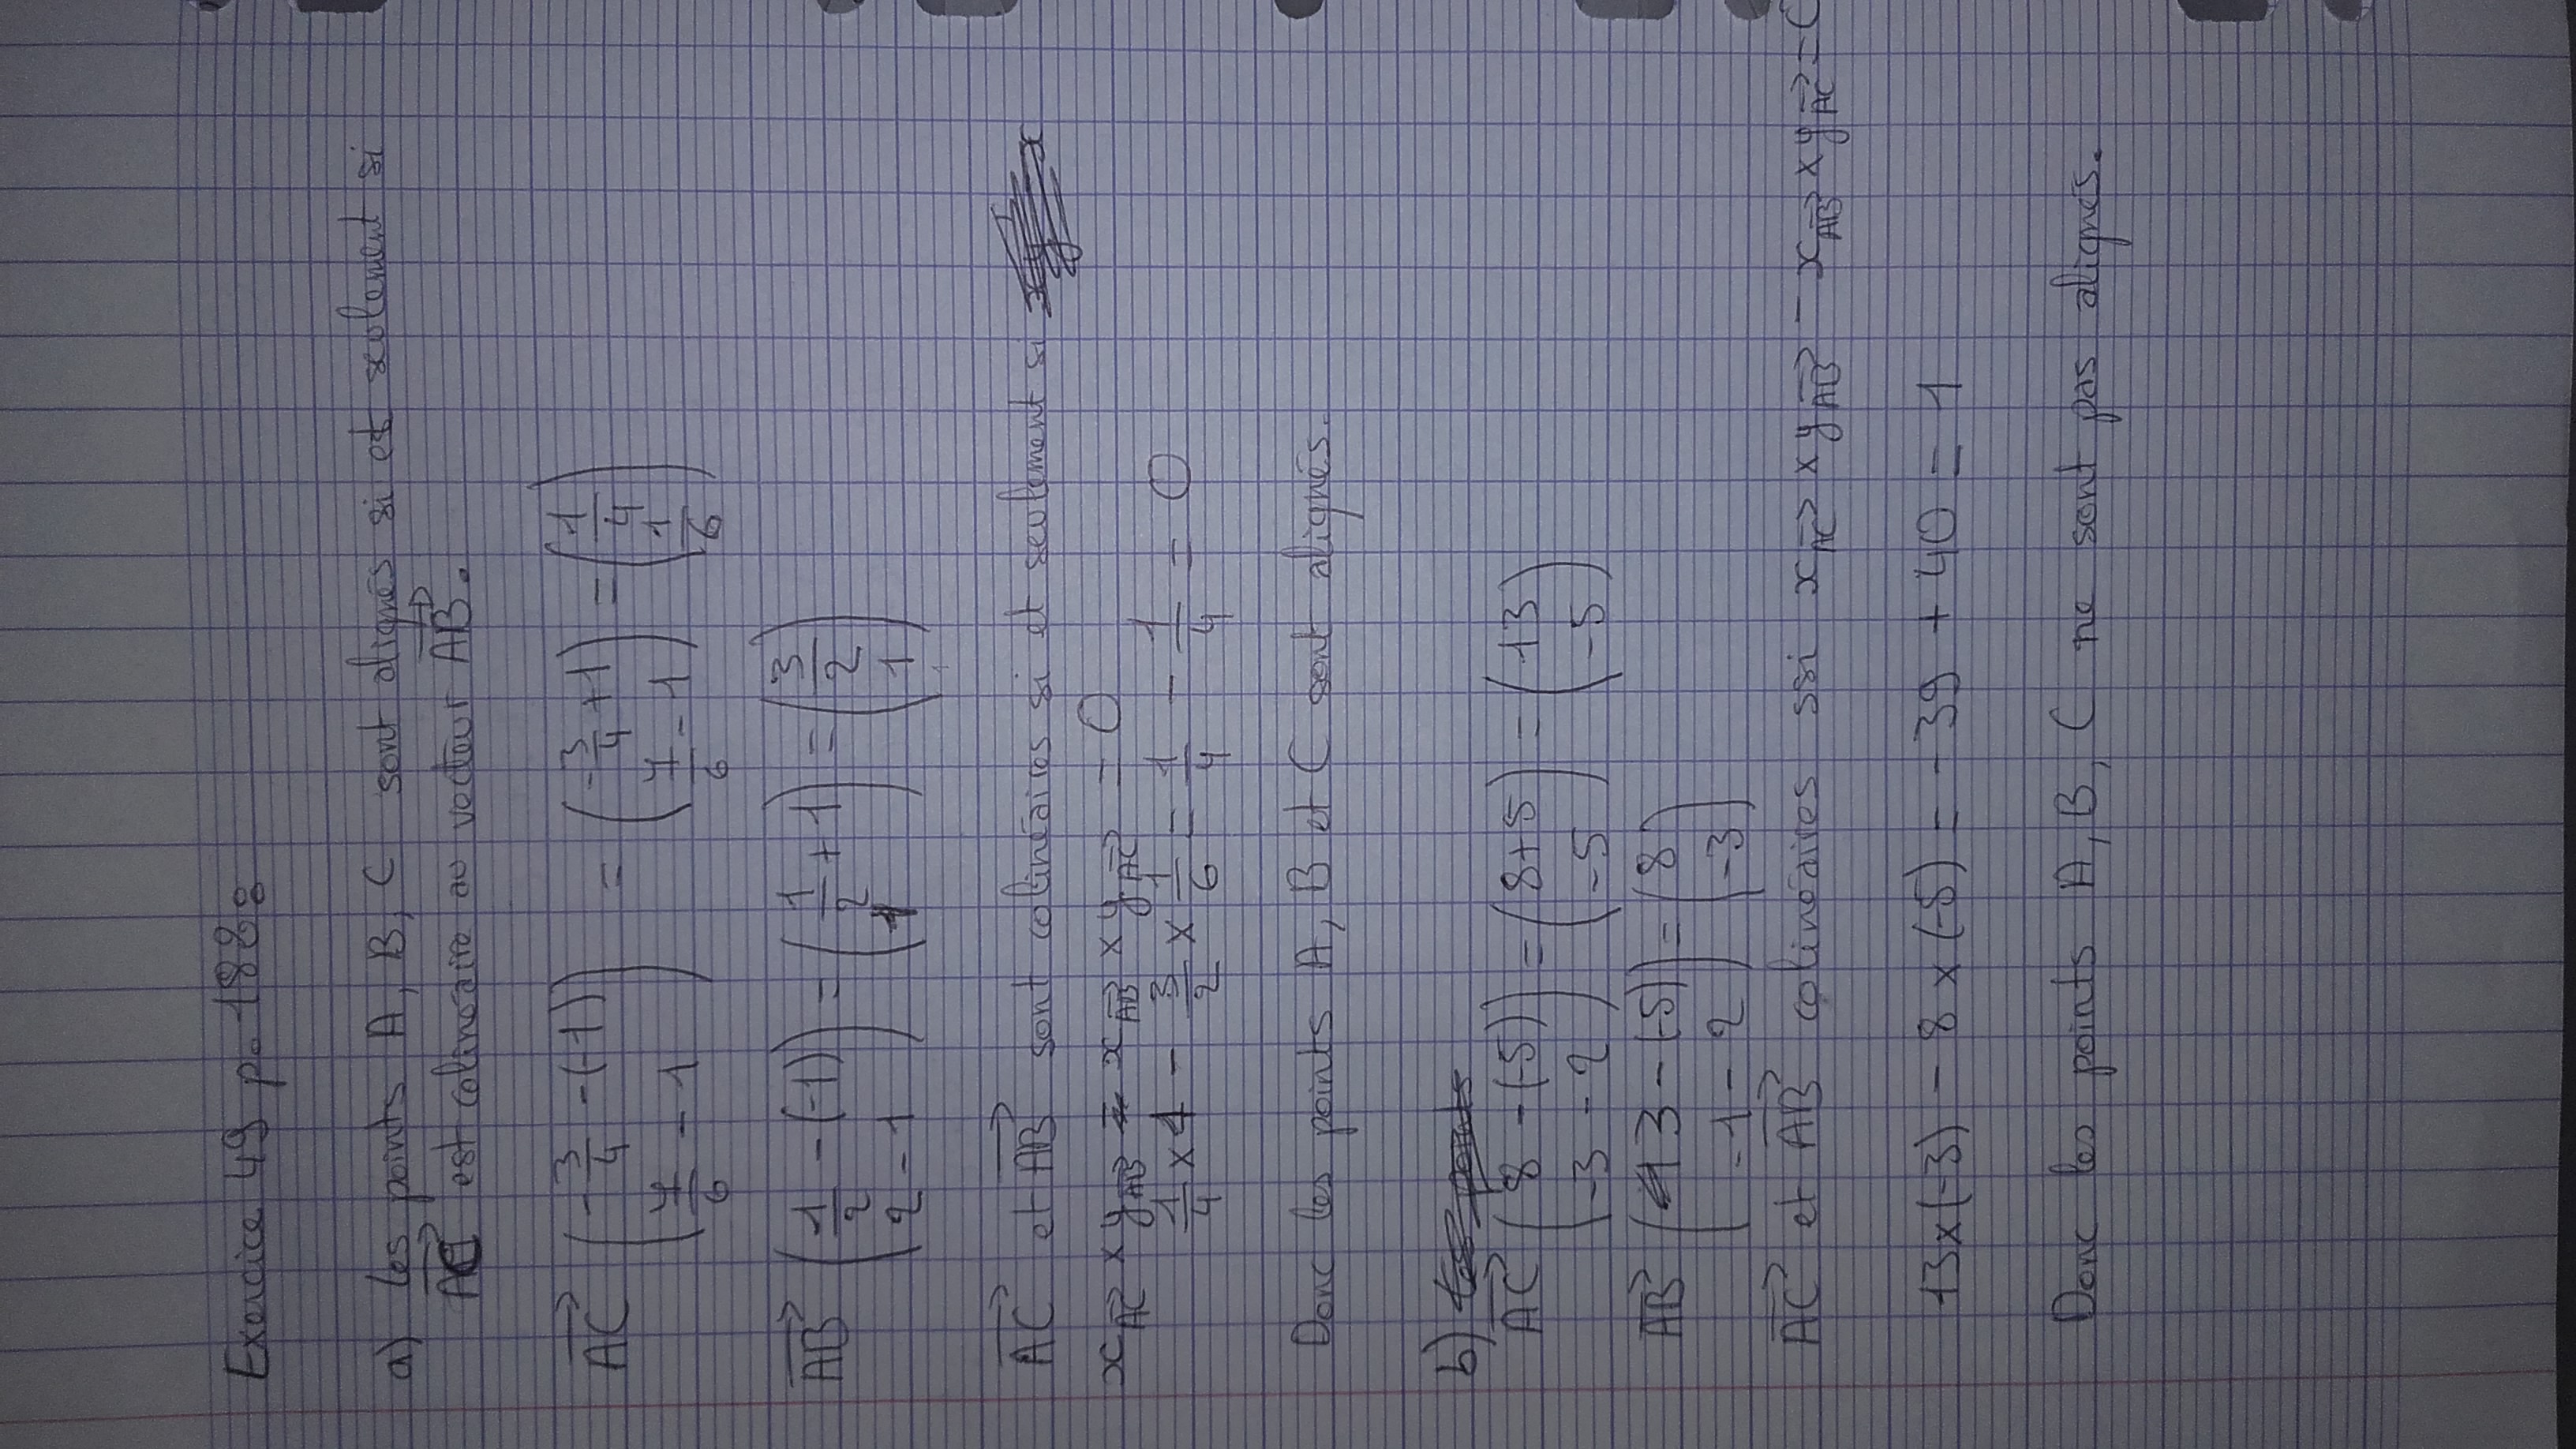 Exercice 49 p. 188 :
a) Les points A, B, C sont alignés si et seulement si
AC⃗ est colinéaire au vecteur AB⃗.
AC⃗ (-3/4 - (-1) ; 7/6 - 1) = (-3/4 + 1 ; 7/6 - 1) = (1/4 ; 1/6)
AB⃗ (1/2 - (-1) ; 2 - 1) = (1/2 + 1 ; 1) = (3/2 ; 1)
AC⃗ et AB⃗ sont colinéaires si et seulement si
x_AC⃗ × y_AB⃗ - x_AB⃗ × y_AC⃗ = 0
1/4 × 1 - 3/2 × 1/6 = 1/4 - 1/4 = 0
Donc les points A, B et C sont alignés.
b)
AC⃗ (8 - (-5) ; -3 - 2) = (8+5 ; -5) = (13 ; -5)
AB⃗ (3 - (-5) ; -1 - 2) = (8 ; -3)
AC⃗ et AB⃗ colinéaires ssi x_AC⃗ × y_AB⃗ - x_AB⃗ × y_AC⃗ = 0
13×(-3) - 8 × (-5) = -39 + 40 = 1
Donc les points A, B, C ne sont pas alignés.